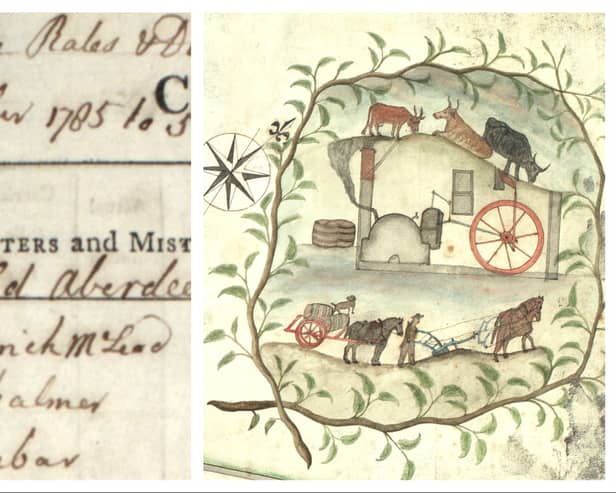 Rates & D
C
1785 to 5
TERS and MIST
d Aberdee
McLeod
almer
bar